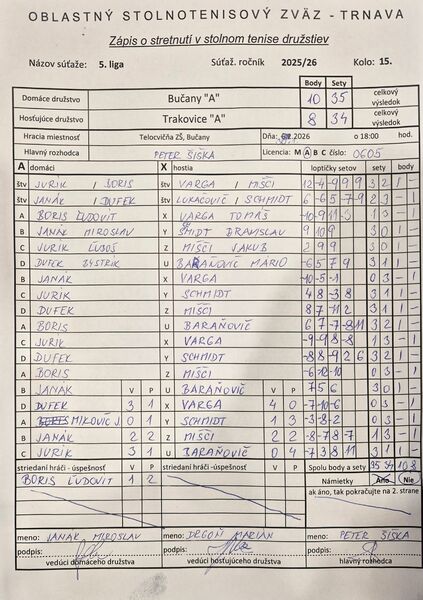 OBLASTNÝ STOLNOTENISOVÝ ZVÄZ - TRNAVA
Zápis o stretnutí v stolnom tenise družstiev
Názov súťaže: 5. liga Súťaž. ročník 2025/26 Kolo: 15.
Body Sety
Domáce družstvo Bučany "A" 10 35 celkový výsledok
Hosťujúce družstvo Trakovice "A" 8 34 celkový výsledok
Hracia miestnosť Telocvičňa ZŠ, Bučany Dňa: .2026 o 18:00 hod.
Hlavný rozhodca PETER ŠIŠKA Licencia: M A B C číslo: 0605
A domáci X hostia loptičky setov sety body
štv JURIK / BORIS štv VARGA / MIŠČI 12 -4 -9 9 9 3 2 1 -
štv JANÁK / DUFEK štv LUKAČOVIČ / SCHMIDT 6 -6 -5 7 -9 2 3 - 1
A BORIS ĽUDOVIT X VARGA TOMÁŠ -10 -9 11 -3 1 3 - 1
B JANÁK MIROSLAV Y BRANISLAV 9 10 9 3 0 1 -
C JURIK ĽUBOŠ Z MIŠČI JAKUB 2 9 9 3 0 1 -
D DUFEK U MARIO -6 5 7 9 3 1 1 -
B JANÁK X VARGA -10 -5 -1 0 3 - 1
C JURIK Y SCHMIDT 4 8 -3 8 3 1 1 -
D DUFEK Z MIŠČI 8 7 -11 2 3 1 1 -
A BORIS U BARAŇOVIČ 6 7 -7 -8 11 3 2 1 -
C JURIK X VARGA -9 -9 8 -8 1 3 - 1
D DUFEK Y SCHMIDT -8 8 -9 2 6 3 2 1 -
A BORIS Z MIŠČI -6 -12 -10 0 3 - 1
B JANAK V P U BARAŇOVIČ V P 7 5 6 3 0 1 -
D DUFEK 3 1 X VARGA 4 0 -7 -10 -6 0 3 - 1
A MIKOVIČ J 0 1 Y SCHMIDT 1 3 -3 -8 -2 0 3 - 1
B JANAK 2 2 Z MIŠČI 2 2 -8 -7 8 -7 1 3 - 1
C JURIK 3 1 U BARAŇOVIČ 0 4 -7 8 11 3 1 1 -
striedaní hráči - úspešnosť V P striedaní hráči -úspešnosť V P Spolu body a sety 35 34 10 8
BORIS ĽUDOVIT 1 2 Námietky Áno Nie
ak áno, tak pokračujte na 2. strane
meno: JANÁK MIROSLAV meno: DRGOŇ MARIÁN meno: PETER ŠIŠKA
podpis: podpis: podpis:
vedúci domáceho družstva vedúci hosťujúceho družstva hlavný rozhodca